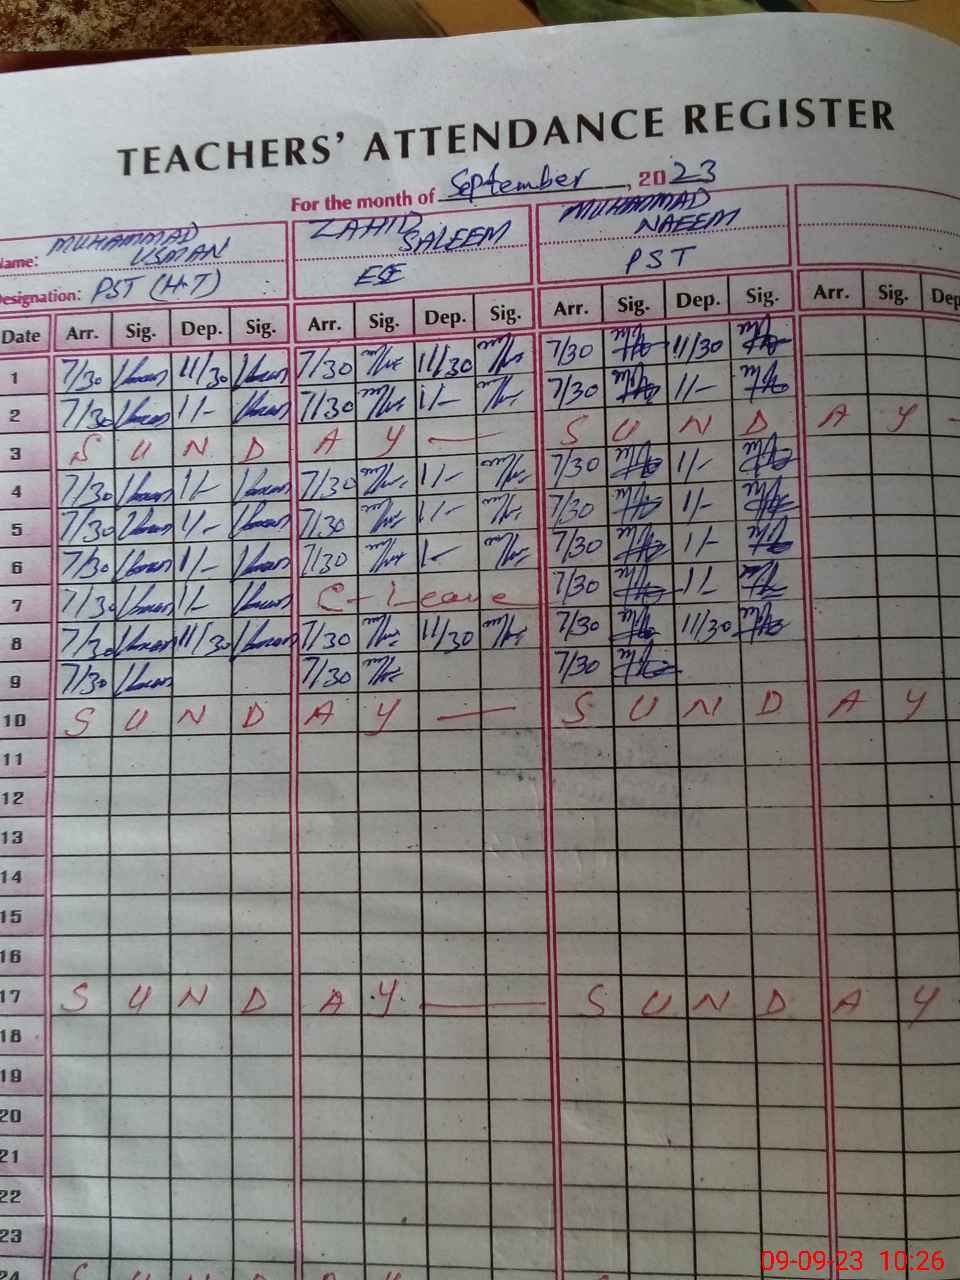 TEACHERS' ATTENDANCE REGISTER
For the month of September, 2023
Name: MUHAMMAD USMAN ZAHID SALEEM MUHAMMAD NAEEM
Designation: PST (H.T) ESE PST
Date Arr. Sig. Dep. Sig. Arr. Sig. Dep. Sig. Arr. Sig. Dep. Sig. Arr. Sig. Dep
1 7/30 11/30 7/30 11/30 7/30 11/30
2 7/30 1/- 7/30 1/- 7/30 1/-
3 S U N D A Y — S U N D A Y -
4 7/30 1/- 7/30 1/- 7/30 1/-
5 7/30 1/- 7/30 1/- 7/30 1/-
6 7/30 1/- 7/30 1- 7/30 1/-
7 7/30 1/- C-Leave 7/30 1/-
8 7/30 11/30 7/30 11/30 7/30 11/30
9 7/30 7/30 7/30
10 S U N D A Y — S U N D A Y
11
12
13
14
15
16
17 S U N D A Y — S U N D A Y
18
19
20
21
22
23
24
09-09-23 10:26